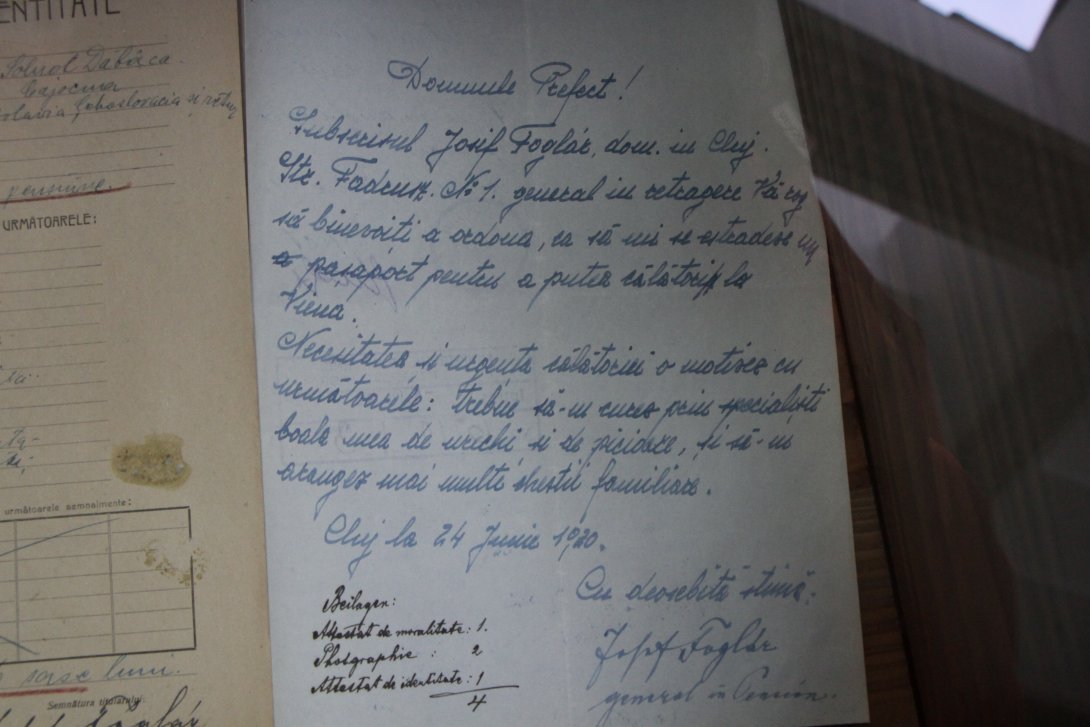 ENTITATE
Cajocna
pensiune.
URMĂTOARELE:
următoarele semnalmente:
sase luni.
Semnătura titularului:
Foglár
Domnule Prefect!
Subscrisul Josif Foglár, dom. in Cluj.
Str. Fadrusz. No 1. general in retragere Vă rog
să binevoiti a ordona, ca să mi se estradeze un
pașaport pentru a putea călători la
Viena.
Necesitatea si urgenta călătoriei o motivez cu
următoarele: Trebue să-m curez prin specialiști
boala mea de urechi si de picioare, și să-m
arangez mai multe chestii familiare.
Cluj la 24 Junie 1920.
Cu deosebită stimă.
Josef Foglár
general in Pension.
Beilagen:
Attestat de moralitate: 1.
Photgraphie : 2
Attestat de identitate: 1
4